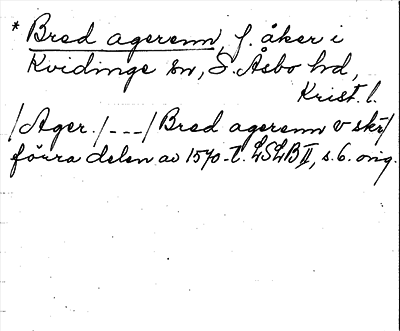 * Bred agerenn, f. åker i
Kvidinge sn, S. Åsbo hd,
Krist. l.
/Ager./---/Bred agerenn v skr/
förra delen av 1570-t. LSLB II, s. 6. orig.